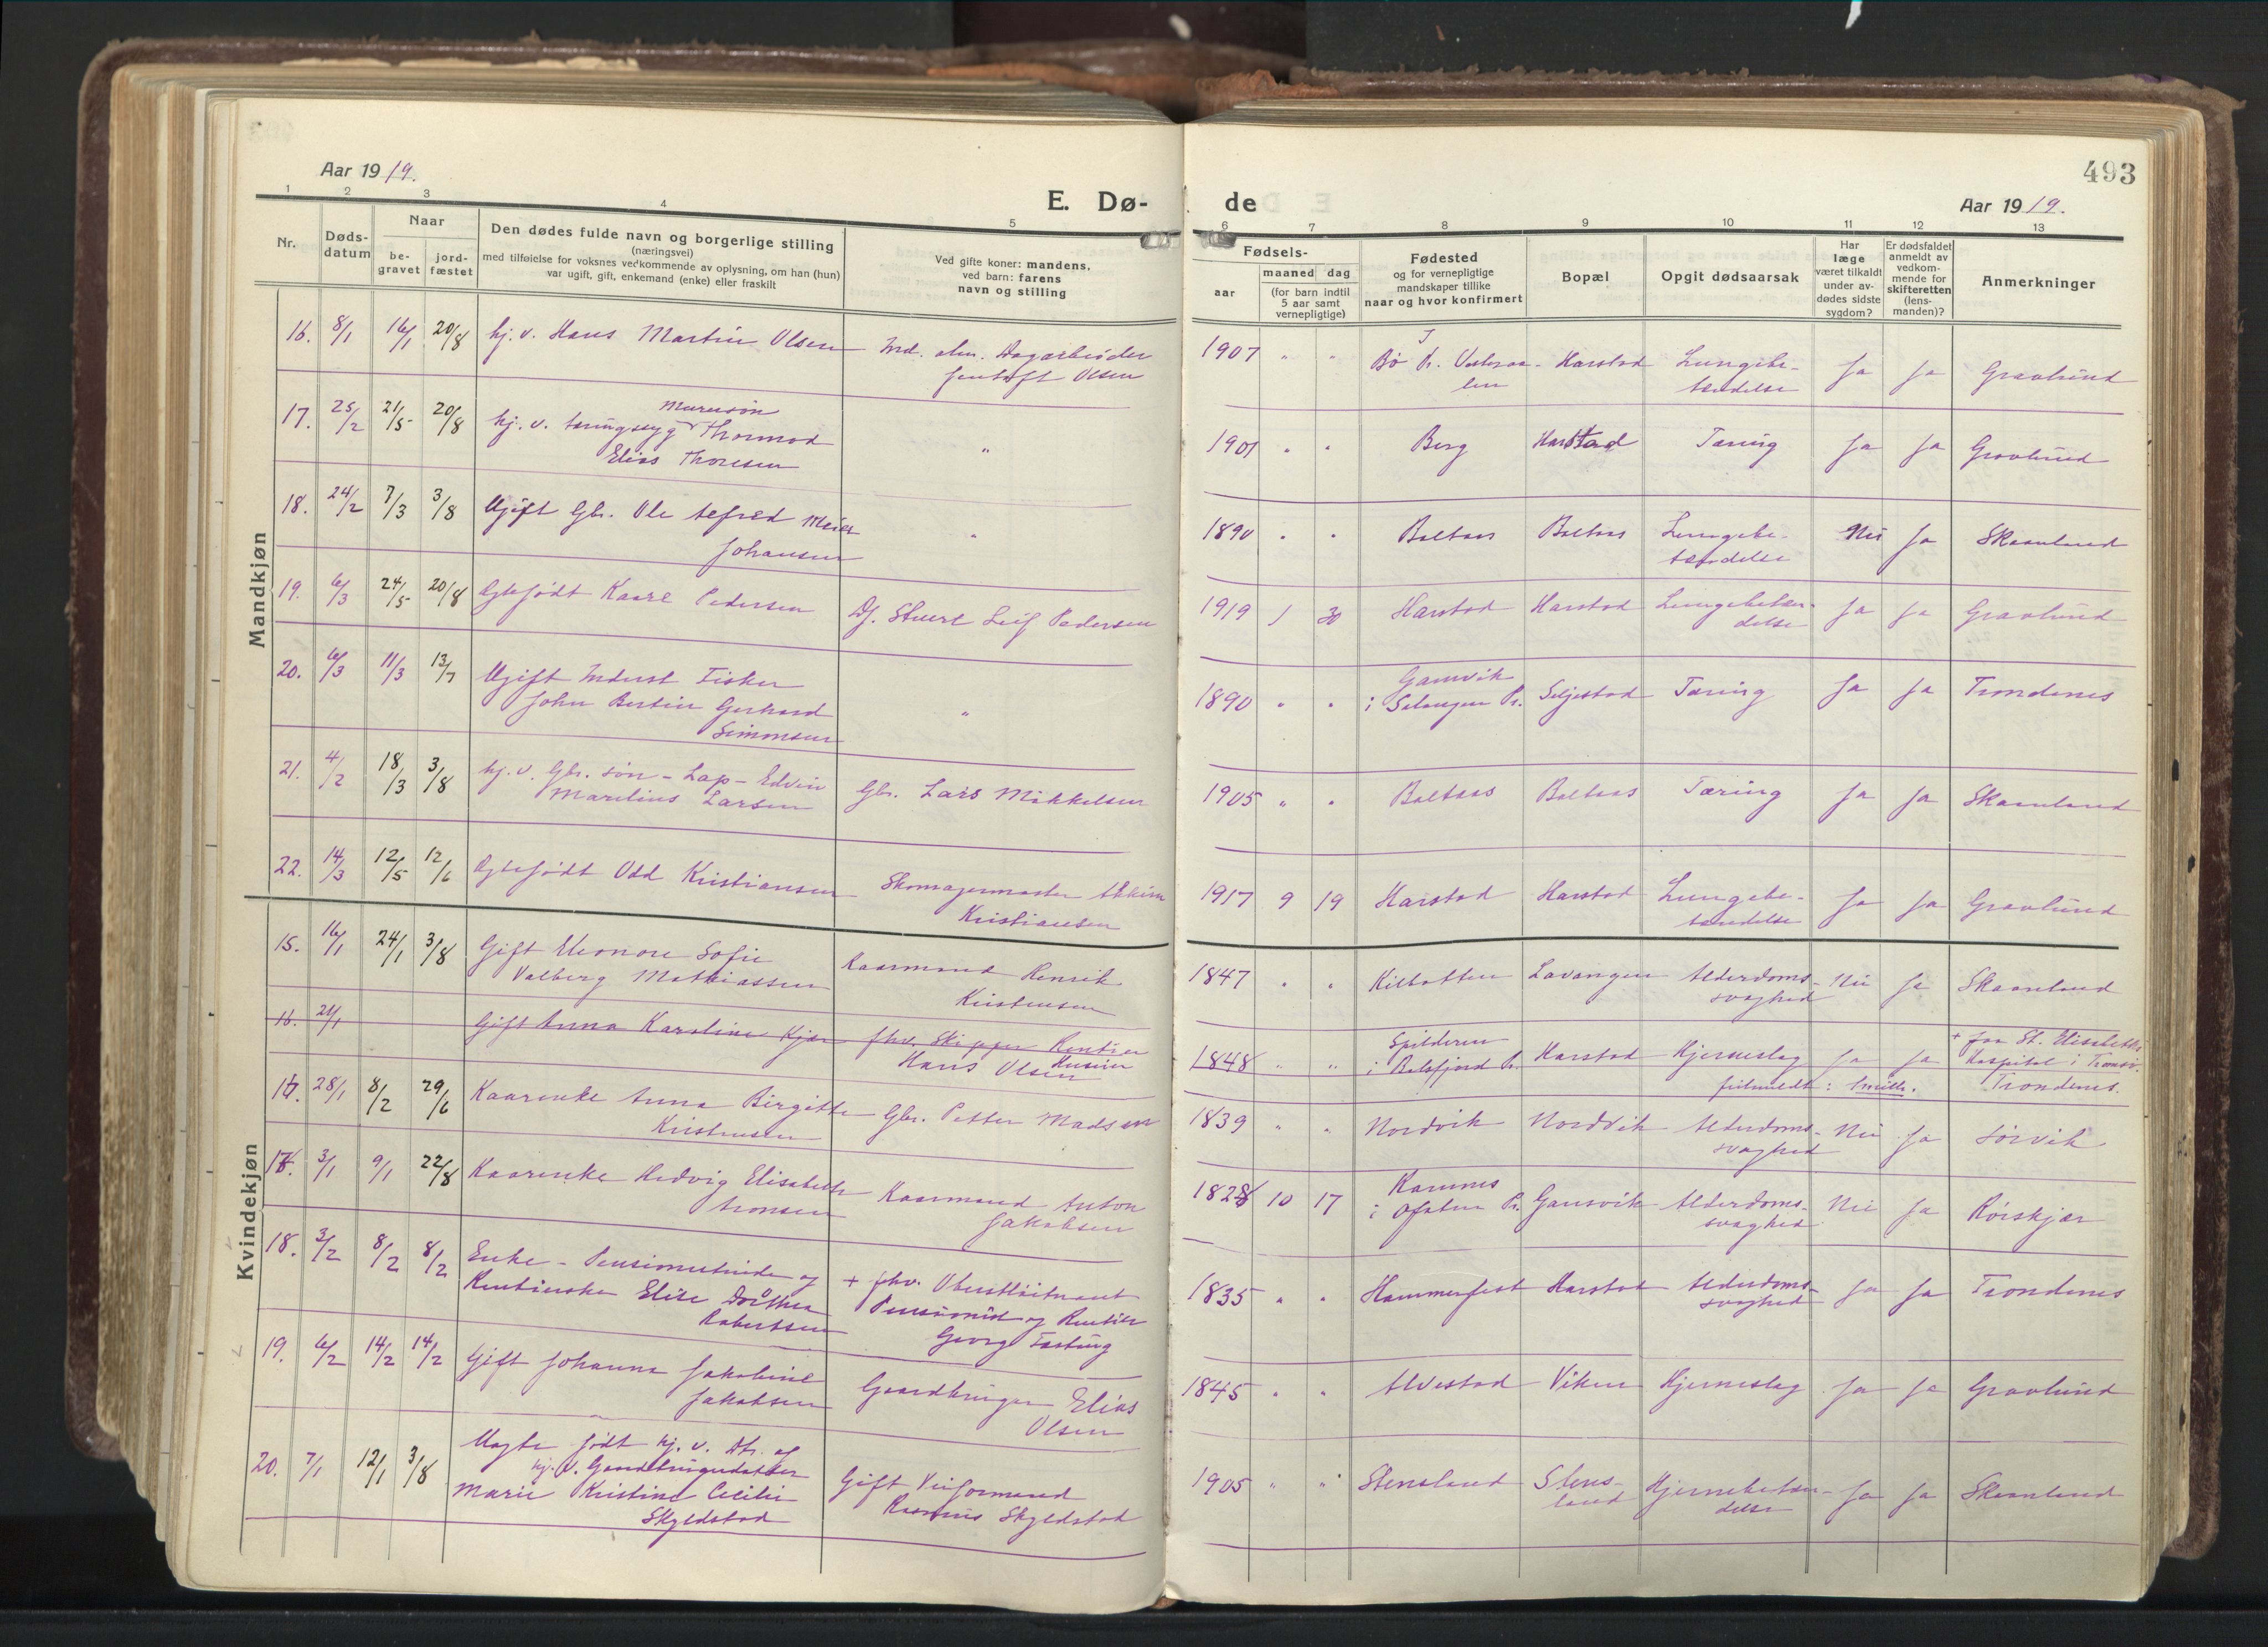 493
Aar 1919.
E. Dø-
de
Aar 1919.
1 2 3 4 5 6 7 8 9 10 11 12 13
Nr.
Døds-
datum
Naar
be-
gravet
jord-
fæstet
Den dødes fulde navn og borgerlige stilling
(næringsvei)
med tilføielse for voksnes vedkommende av oplysning, om han (hun)
var ugift, gift, enkemand (enke) eller fraskilt
Ved gifte koner: mandens,
ved barn: farens
navn og stilling
Fødsels-
aar
maaned dag
(for barn indtil
5 aar samt
vernepligtige)
Fødested
og for vernepligtige
mandskaper tillike
naar og hvor konfirmert
Bopæl
Opgit dødsaarsak
Har
læge
været tilkaldt
under av-
dødes sidste
sygdom?
Er dødsfaldet
anmeldt av
vedkom-
mende for
skifteretten
(lens-
manden)?
Anmerkninger
Mandkjøn
16. 8/1 16/1 20/8 hj. v. Hans Martin Olsen
Olsen
1907 " " Bø Pr. Vesteraa-
len
Harstad Lungebe-
tændelse
Ja Ja Gravlund
17. 25/2 21/5 20/8 hj. v. tæringssyg Thormod
Elias Thoresen
"
1901 " " Berg Harstad Tæring Ja Ja Gravlund
18. 24/2 7/3 3/8 Ugift Gbr. Ole Alfred Meier
Johansen
"
1890 " " Boltaas Boltaas Lungebe-
tændelse
Nei Ja Skaanland
19. 6/3 24/5 20/8 Egtefødt Kaare Pedersen
Df. Stuert Leif Pedersen
1919 1 30 Harstad Harstad Lungebetæn-
delse
Ja Ja Gravlund
20. 6/3 11/3 13/7 Ugift Inderst Fisker
John Bertin Gerhard
Simonsen
"
1890 " " Gamvik
i Salangen Pr.
Seljestad Tæring Ja Ja Trondenes
21. 4/2 18/3 3/8 hj. v. Gbr. søn - Lap - Edvin
Marelius Larsen
Gbr. Lars Mikkelsen
1905 " " Boltaas Boltaas Tæring Ja Ja Skaanland
22. 14/3 12/5 12/6 Egtefødt Odd Kristiansen
Skomagermester
Kristiansen
1917 9 19 Harstad Harstad Lungebe-
tændelse
Ja Ja Gravlund
Kvindekjøn
15. 16/1 24/1 3/8 Gift Eleonore Sofie
Valberg Mathiassen
Kaarmand Henrik
Kristensen
1847 " " Kilbotten Lavangen Alderdoms-
svaghed
Nei Ja Skaanland
16. 21/1 Gift Anna Karoline Kjær
fhv. Skipper Rentier
Hans Olsen
1848 " " Spilderen
i Balsfjord Pr.
Harstad Hjerneslag Ja Ja + paa St. Elisabeths
Hospital i Tromsø.
Trondenes.
28/1 8/2 29/6 Kaarenke Anna Birgitte
Kristensen
Gbr. Petter Madsen
1839 " " Nordvik Nordvik Alderdoms-
svaghed
Nei Ja Sørvik
3/1 9/1 22/8 Kaarenke Hedvig Elisabeth
Aronsen
Kaarmand Anton
Jakobsen
1828 10 17
i Ofoten Pr.
Gausvik Alderdoms-
svaghed
Nei Ja Rørskjær
18. 3/2 8/2 8/2 Enke - Pensionistinde og
Rentierske Elise Dorthea
Robertsen
+ fhv. Oberstløitnant
Pensionist og Rentier
Georg Fasting
1835 " " Hammerfest Harstad Alderdoms-
svaghed
Ja Ja Trondenes
19. 6/2 14/2 14/2 Gift Johanna Jakobine
Jakobsen
Gaardbruger Elias
Olsen
1845 " " Alvestad Viken Hjerneslag Ja Ja Gravlund
20. 7/1 12/1 3/8 Uegte født hj. v. Dtr. af
hj. v. Gaardbrugerdatter
Marie Kristine Cecilie
Skjeldstad
Gift Veiformand
Rasmus Skjeldstad
1905 " " Stensland Stens-
land
Hjernebetæn-
delse
Ja Ja Skaanland